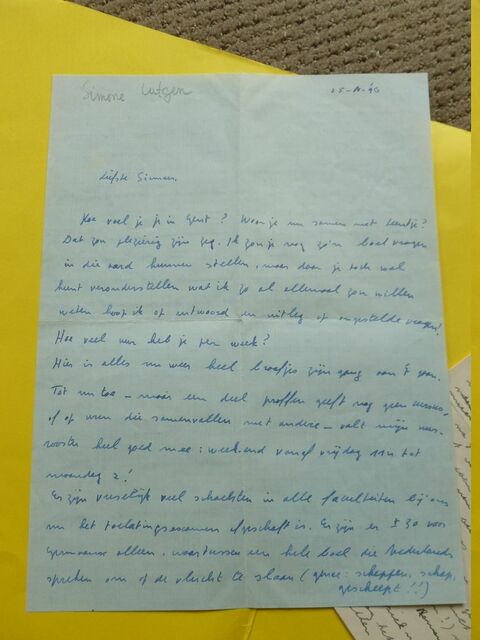 Simone Lutgen
Liefste Simone,
Hoe voel je je in Gent? Woon je nu samen met Leentje?
Dat zou plezierig zijn zeg. Ik zou je nog zo'n boel vragen
in die aard kunnen stellen, maar daar je toch wel
kunt veronderstellen wat ik zo al allemaal zou willen
weten hoop ik op antwoord en uitleg op ongestelde vragen!
Hoe veel uur heb je per week?
Hier is alles nu weer heel braafjes zijn gang aan 't gaan.
Tot nu toe – maar een deel proffen geeft nog geen cursus,
of op uren die samenvallen met andere – valt mijn uur-
rooster heel goed mee: weekend vanaf vrijdag 11u tot
maandag 2!
Er zijn vreselijk veel schachten in alle faculteiten bij ons
nu het toelatingsexamen afgeschaft is. Er zijn er ± 30 voor
Germaanse alleen, waartussen een hele boel die Nederlands
spreken om op de vlucht te slaan (genre: scheppen, schap,
gescheept!!)